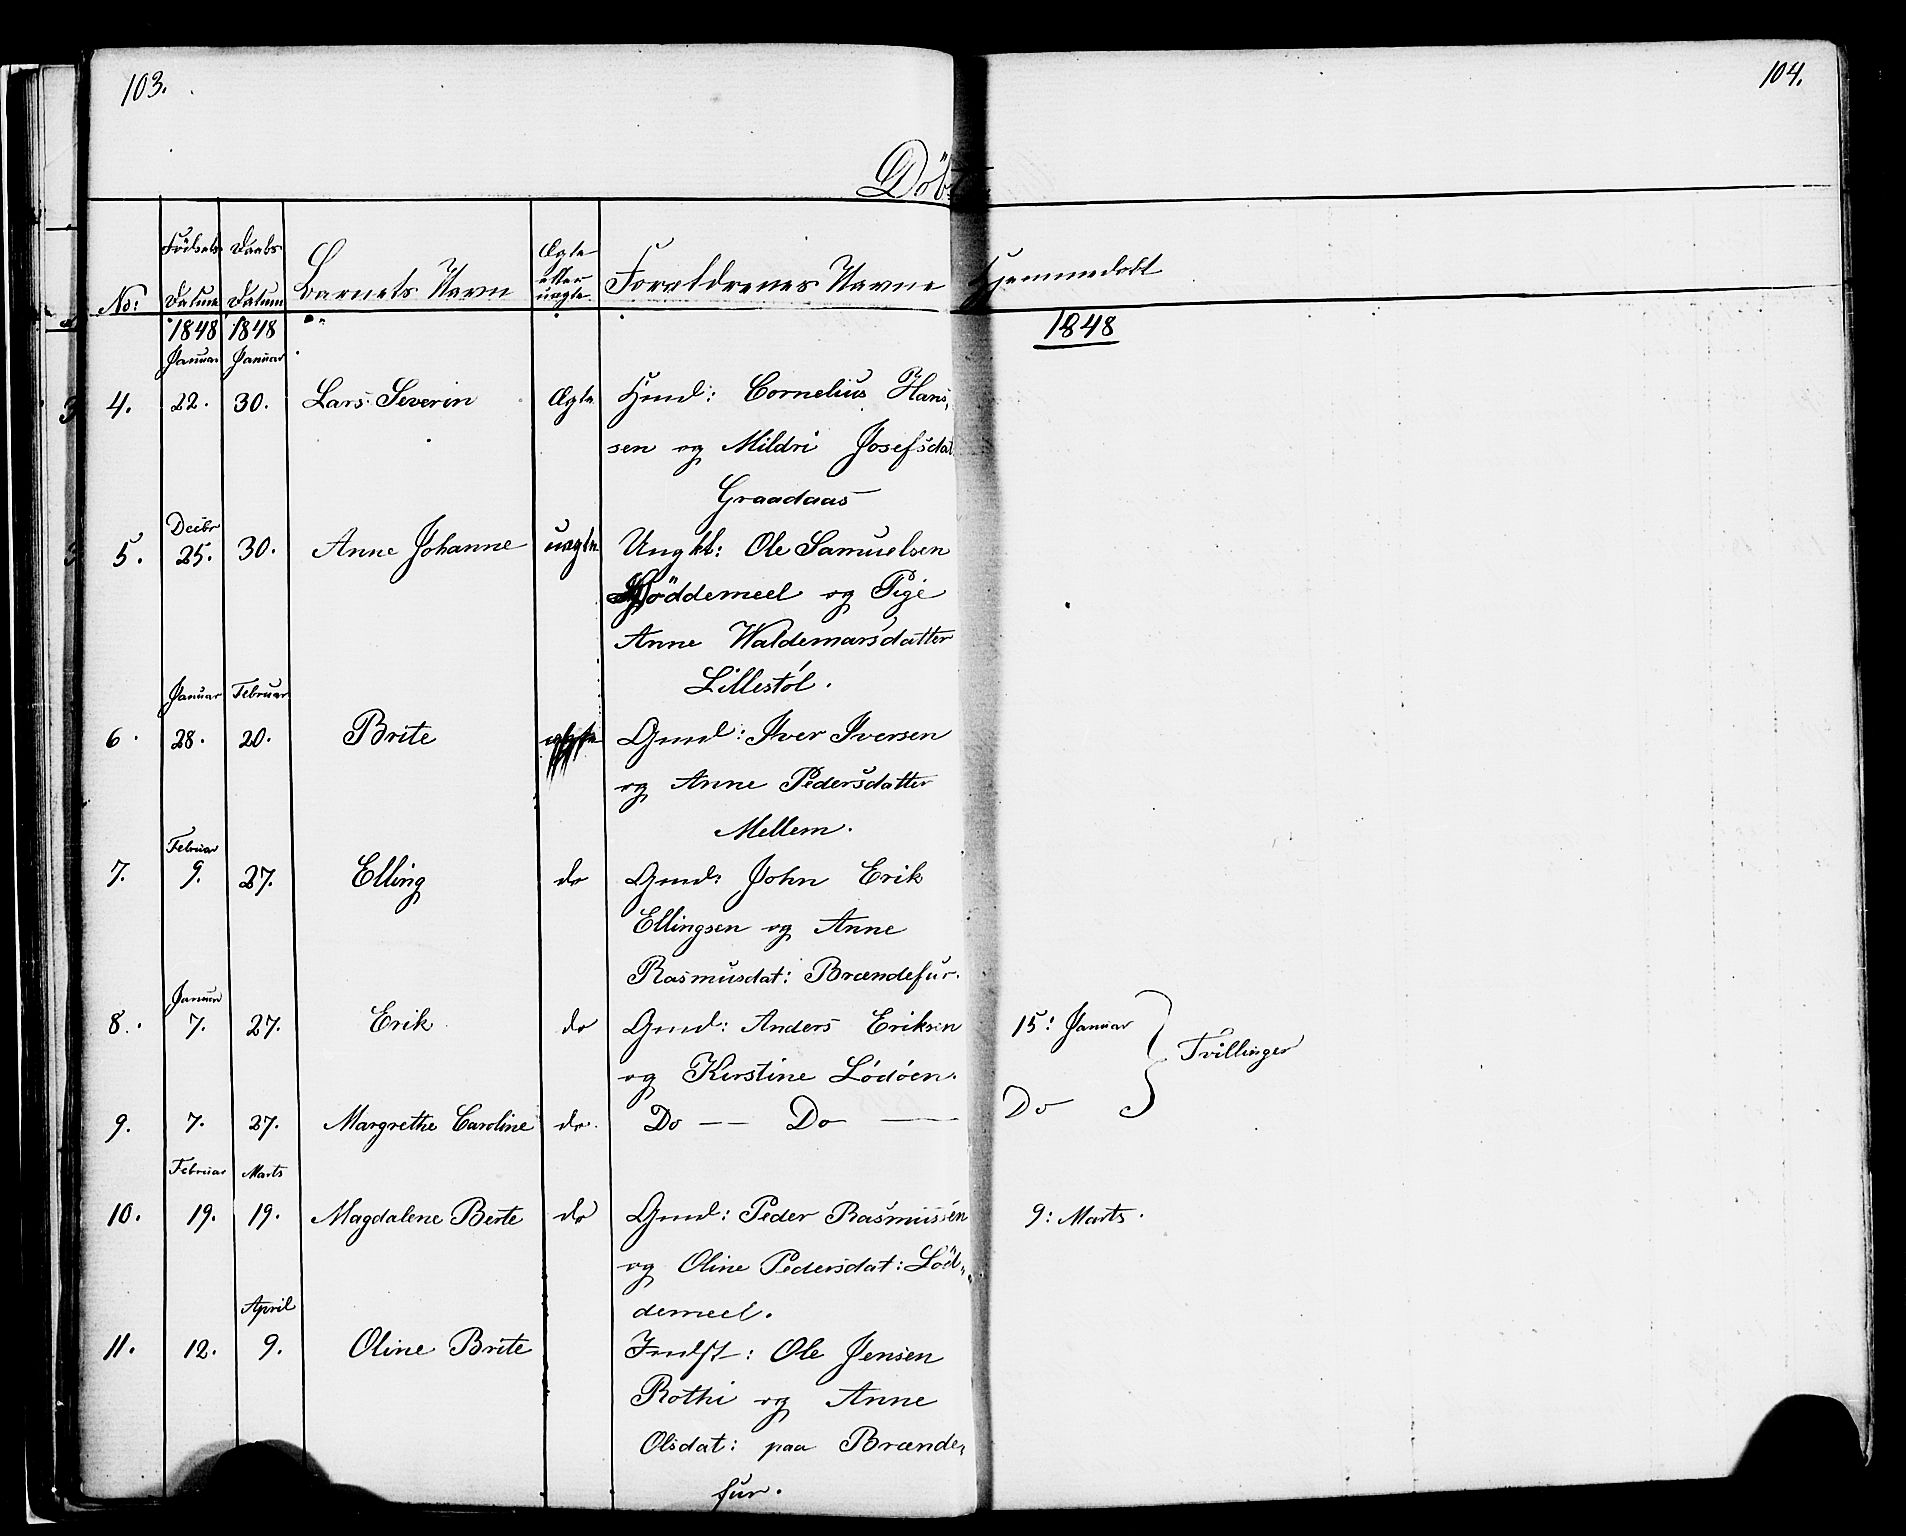 103.
104.
Döbte
No:
Fødsels Datum
Daabs Datum
Barnets Navn
Ægte eller uægte
Forældrenes Navne
Hjemmedöbt
1848 1848
1848
Januar Januar
4. 22. 30. Lars Severin Ægte Gmd: Cornelius R. Hans,
sen og Mildri Josefsdat
Graadaas
Decbr
5. 25. 30. Anne Johanne uægte Ungkl: Ole Samuelsen
Löddemeel og Pige
Anne Waldemarsdatter
Lillestöl.
Januar Februar
6. 28. 20. Brite ægte Gmd: Iver Iversen
og Anne Pedersdatter
Mellem.
Februar
7. 9. 27. Elling do Gmd: John Erik
Ellingsen og Anne
Rasmusdat: Brændefur.
Januar
8. 7. 27. Erik do Gmd: Anders Eriksen 15: Januar
og Kirstine Lödöen. Tvillinger
9. 7. 27. Margrethe Caroline do. Do — Do — Do
Februar Marts
10. 19. 19. Magdalene Berte do Gmd: Peder Rasmussen 9: Marts.
og Oline Pedersdat: Löd,,
demeel.
April
11. 12. 9. Oline Brite Indst: Ole Jensen
Rothi og Anne
Olsdat: paa Brænde,
fur.